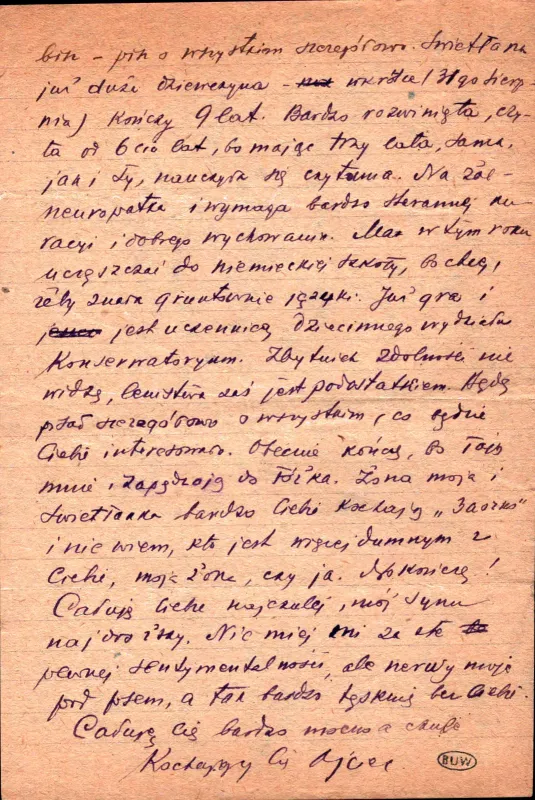 bin - pin o wszystkim szczegółowo. Swietłana
już duża dziewczyna - wkrótce (31go sierp-
nia) kończy 9 lat. Bardzo rozwinięta, czy-
ta od 6ciu lat, bo mając trzy lata, sama,
jak i Ty, nauczyła się czytania. Na żal -
neuropatka i wymaga bardzo starannej ku-
racyi i dobrego wychowania. Ma w tym roku
uczęszczać do niemieckiej szkoły, bo chcę,
żeby znała gruntownie języki. Już gra i
jest uczennicą dziecinnego wydziału
Konserwatoryum. Zbytnich zdolności nie
widzę, lenistwa zaś jest pod dostatkiem. Będę
pisał szczegółowo o wszystkim, co będzie
Ciebie interesowało. Obecnie kończę, bo
mnie zapędzają do łóżka. Żona moja i
Swietłanka bardzo Ciebie kochają „Заочно"
i nie wiem, kto jest więcej dumnym z
Ciebie, moja żona, czy ja. No kończę!
Całuję Ciebie najczulej, mój synu
najdroższy. Nie miej mi za złe
pewnej sentymentalności, ale nerwy moje
pod psem, a tak bardzo tęsknię bez Ciebie.
Całuję Cię bardzo mocno a czule
Kochający Cię Ojciec
BUW